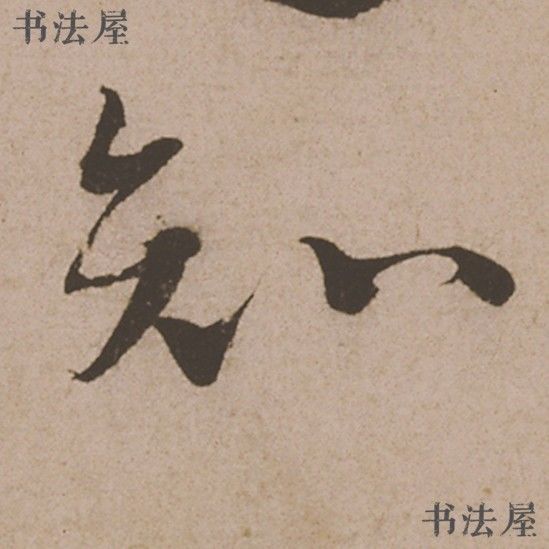 书法屋
知
书法屋